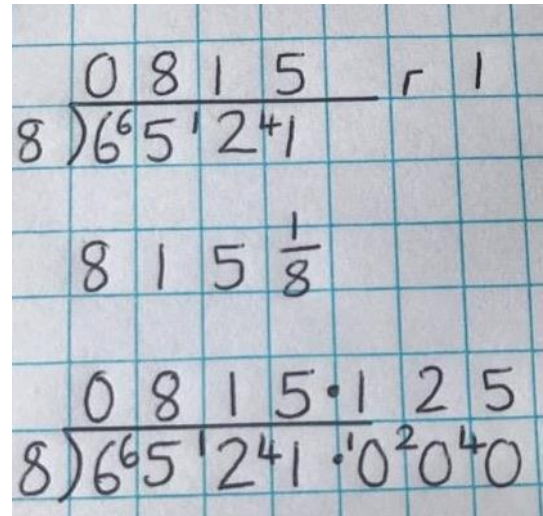 0 8 1 5 r 1
8)6⁶5¹2⁴1
8 1 5 1/8
0 8 1 5·1 2 5
8)6⁶5¹2⁴1·¹0²0⁴0